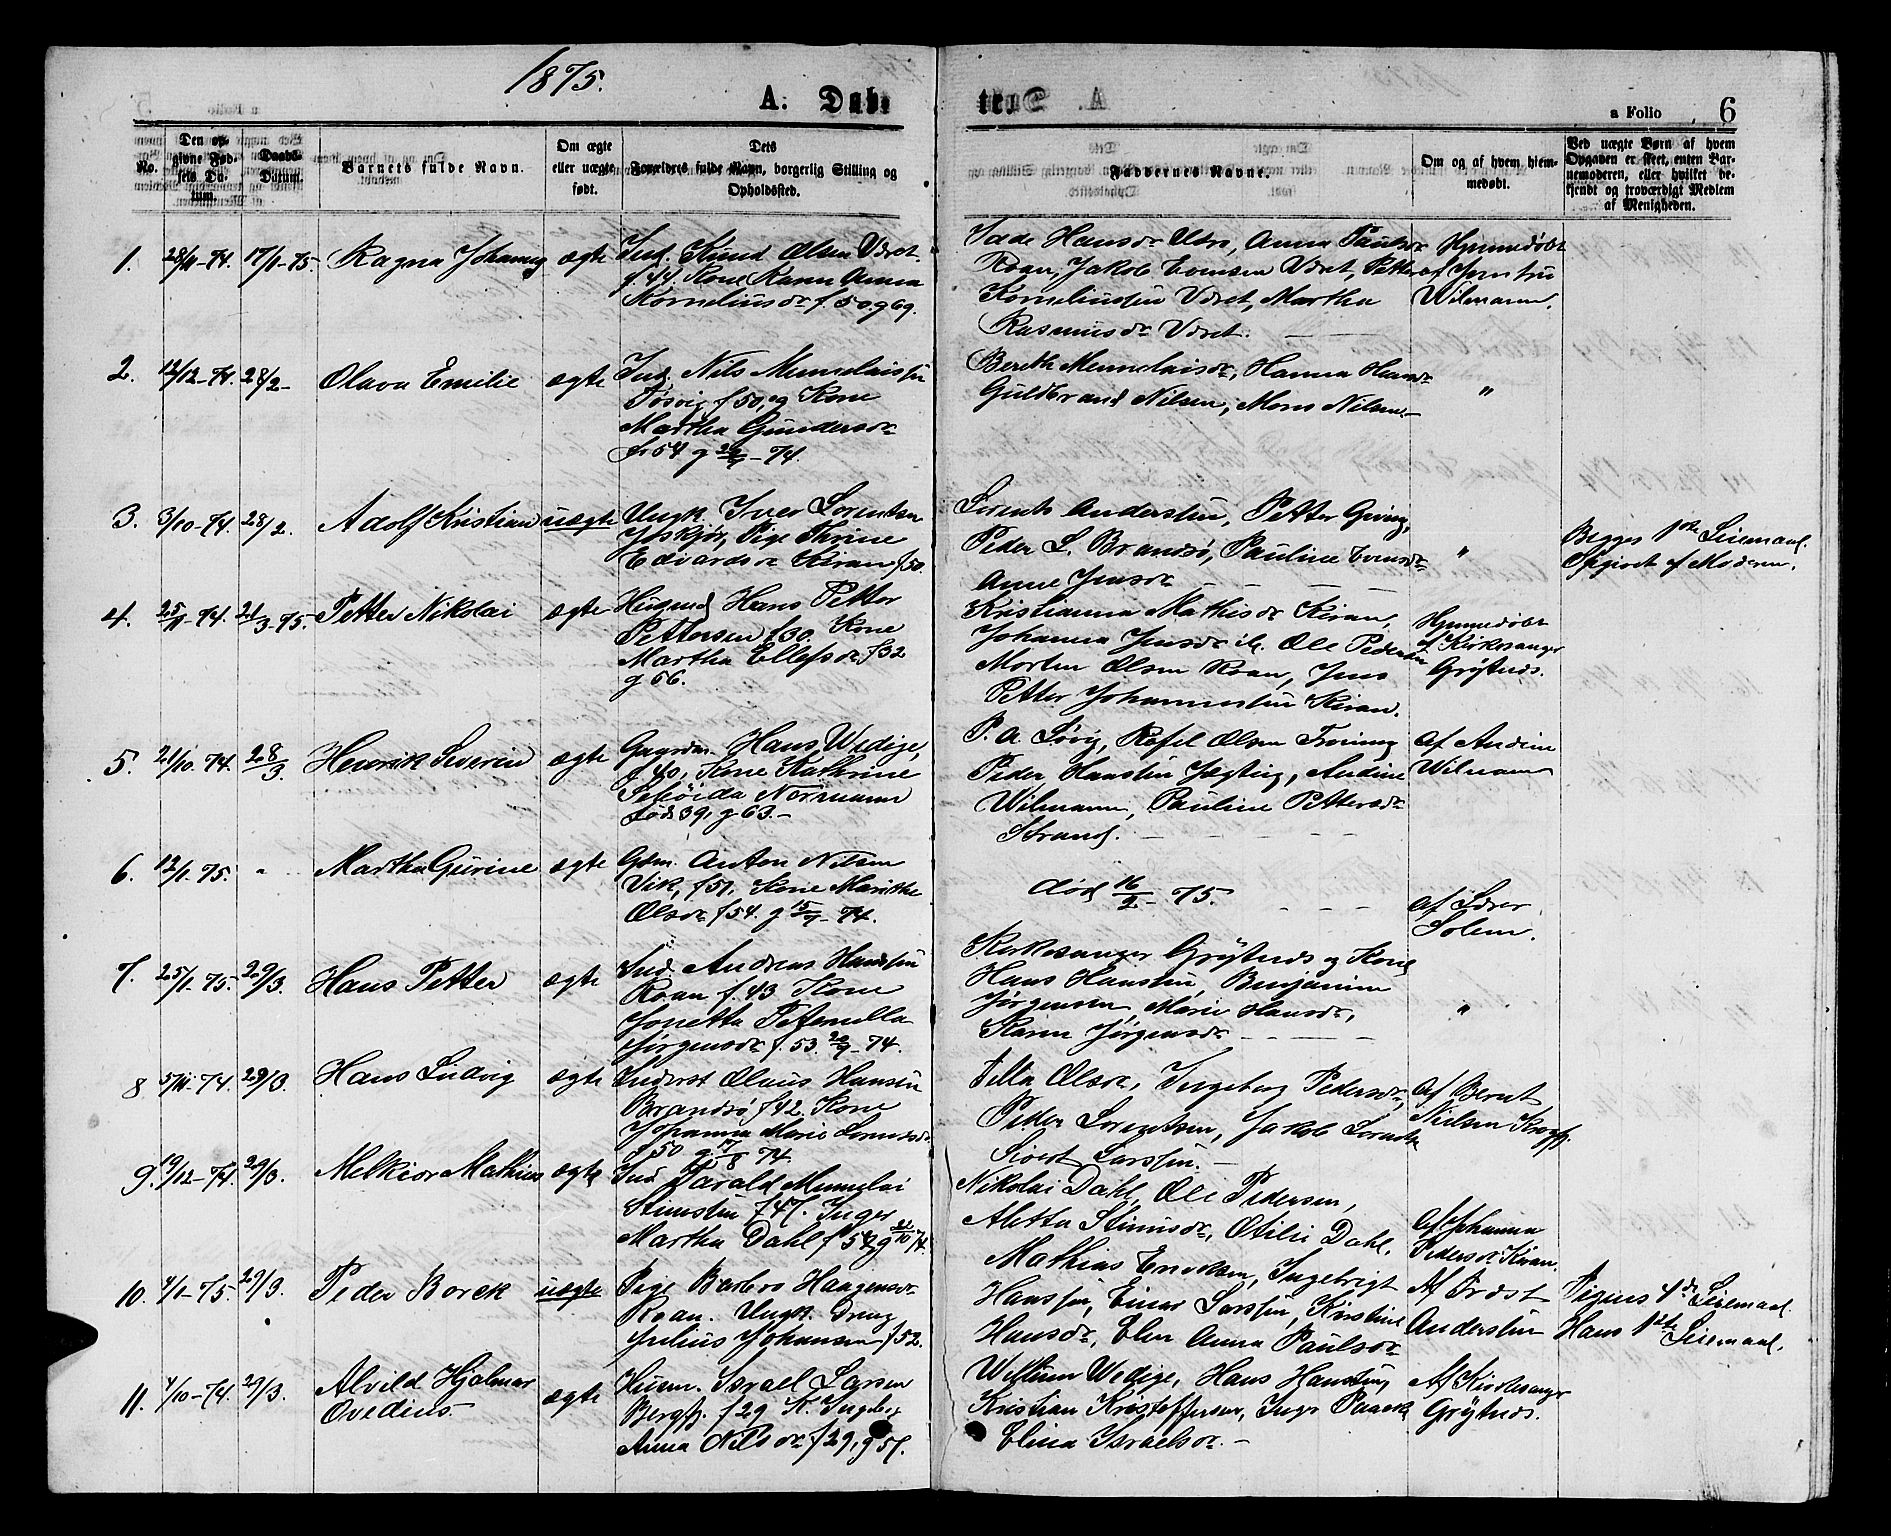 1875.
A. Døbte
a Folio 6
No.
Den opgivne Fødsels Datum.
Daabs Datum.
Barnets fulde Navn.
Om ægte eller uægte født.
Dets Forældres fulde Navn, borgerlig Stilling og Opholdssted.
Faddernes Navne.
Om og af hvem hjemmedøbt.
Ved uægte Børn af hvem Opgaven er skeet, enten Barnemoderen, eller hvilket bekjendt og troværdigt Medlem af Menigheden.
1. 28/11-74. 17/1-75. Ragna Johanna ægte
Ind. Knud Olsen Utset
f. 44. Kone Karen Anna
Korneliusdr f. 50. g 69.
Hansdr Anna Paulsdr
Roan, Jakob Evensen Utset, Petter
Korneliussen Utset, Martha
Rasmusdr Utset.
Hjemmedøbt
af Jomfru
Wilmann.
2. 12/12-74. 28/2- Olava Emilie ægte
Ind. Nils Mennelaissen
Tøsvig f 50, og Kone
Martha Gundersdr
f 54 g 74.
Bereth Mennelaisdr, Hanna Hansdr
Guldbrand Nilsen, Mons Nilsen
"
3. 3/10-74. 28/2. Adolf Kristian uægte
Ungk. Iver Lorentsen
Pige Thrine
Edvardsdr Kiran f 50.
Lorents Anderssen, Petter Giving,
Peder L. Brandsø, Pauline Evensdr
Anne Jensdr
"
Begges 1ste Leiermaal.
Opgivet af Moderen.
4. 25/11-74. 21/3-75. Petter Nikolai ægte
Hans Petter
Pettersen f 30. Kone
Martha Ellefsdr f 32
g 56.
Kristianna Mathisdr Kiran,
Johanna Jensdr ib. Ole Pedersen
Morten Olsen Roan, Jens
Petter Johannessen Kiran.
Hjemmedøbt
af Kirkesanger
Grøtnes.
5. 21/10-74. 28/3. Henrik Severin ægte
Hans Wedige,
f. 40, Kone Kathrine
Normann
Født 39, g 63.-
P. A. Løvig, Rafel Olsen
Peder Hanssen Jægting, Andine
Wilmann, Pauline Pettersdr
Strand.
Af Andine
Wilmann
6. 12/1-75. - Martha Gurine ægte
Gdm. Anton Nilsen
Vik, f 51, Kone Marithe
Olsdr f 54. g 74.
død 16/2-75.
af Lærer
Solem.
7. 25/1-75. 29/3. Hans Petter ægte
Ind. Andreas Hanssen
Roan f. 43 Kone
Jonetta Peternella
Jørgensdr f. 53. 74.
Kirkesanger Grøtnes og Kone
Hans Hanssen, Benjamin
Jørgensen, Marie Hansdr,
Karen Jørgensdr
"
8 5/11-74. 29/3. Hans Ludvig ægte
Inderst Olaus Hansen
Brandsø f 42. Kone
Johanna Marie Lorentsdr
f 50 g 17/8 74.
Olsdr, Ingeborg Pedersdr,
Peder Lorentsen, Jakob Lorentsen
Sivert Larssen.
Af Bernt
Nielsen
9. 19/12-74. 29/3. Melkior Mathias ægte
Ind. Tarald Mennelai
Stimssen f 47. Inger
Martha Dahl f 54 74.
Nikolai Dahl, Ole Pedersen,
Aletta Stinusdr, Otilie Dahl,
Mathias
Af Johanna
Pedersdr Kiran.
10. 4/1-75. 29/3. Peder Borck uægte
Pige Barbro Haagensdr
Roan. Ungk. Dreng
Julius Johansen f 52.
Ingebrigt
Hanssen, Einar Larssen, Kirstine
Hansdr, Elen Anna Paulsdr
Af
Anderssen
Pigens 4de Leiermaal.
Hans 1ste Leiermaal.
11. 4/10-74. 29/3. Alvild Hjalmar
Ovedius ægte
Husm. Israel Larsen
Bergfj. f 29 K. Ingeborg
Anna Nilsdr f 29, g 57.
Willum Wedige, Hans Hanssen,
Kristian Kristoffersen,
Elina Israelsdr.
Af Kirkesanger
Grøtnes.